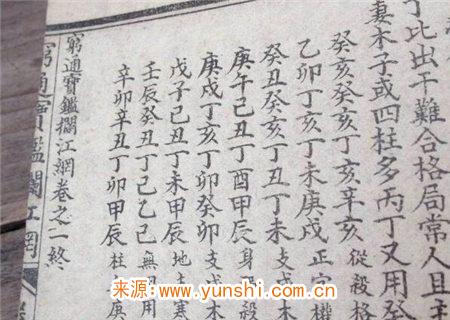 丁比出干難合格局常人且
妻木子或四柱多丙丁又用癸
癸亥癸亥丁亥辛亥 從殺格
乙卯丁亥丁未庚戌 正官
癸丑癸亥丁亥丁未 支成木
庚午己丑丁酉甲辰 身
庚戌丁亥丁卯癸卯 支成
戊子己丑丁未甲辰 地支
壬辰癸丑丁巳乙巳 無用
辛卯辛丑丁卯甲辰 柱
窮通寶鑑攔江網卷之一終
窮通寶鑑攔江網
来源:www.yunshi.com.cn